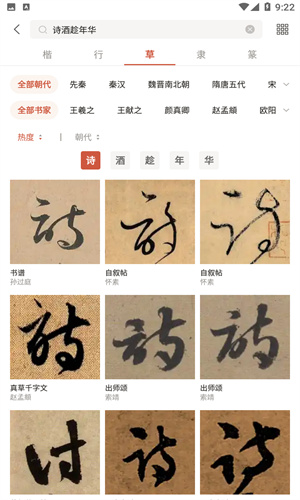 9:22
诗酒趁年华
楷 行 草 隶 篆
全部朝代 先秦 秦汉 魏晋南北朝 隋唐五代 宋
全部书家 王羲之 王献之 颜真卿 赵孟頫 欧阳
热度 | 朝代
诗 酒 趁 年 华
诗 诗 诗
书谱 自叙帖 自叙帖
孙过庭 怀素 怀素
诗 诗 诗
真草千字文 出师颂 出师颂
赵孟頫 索靖 索靖
诗 诗 诗